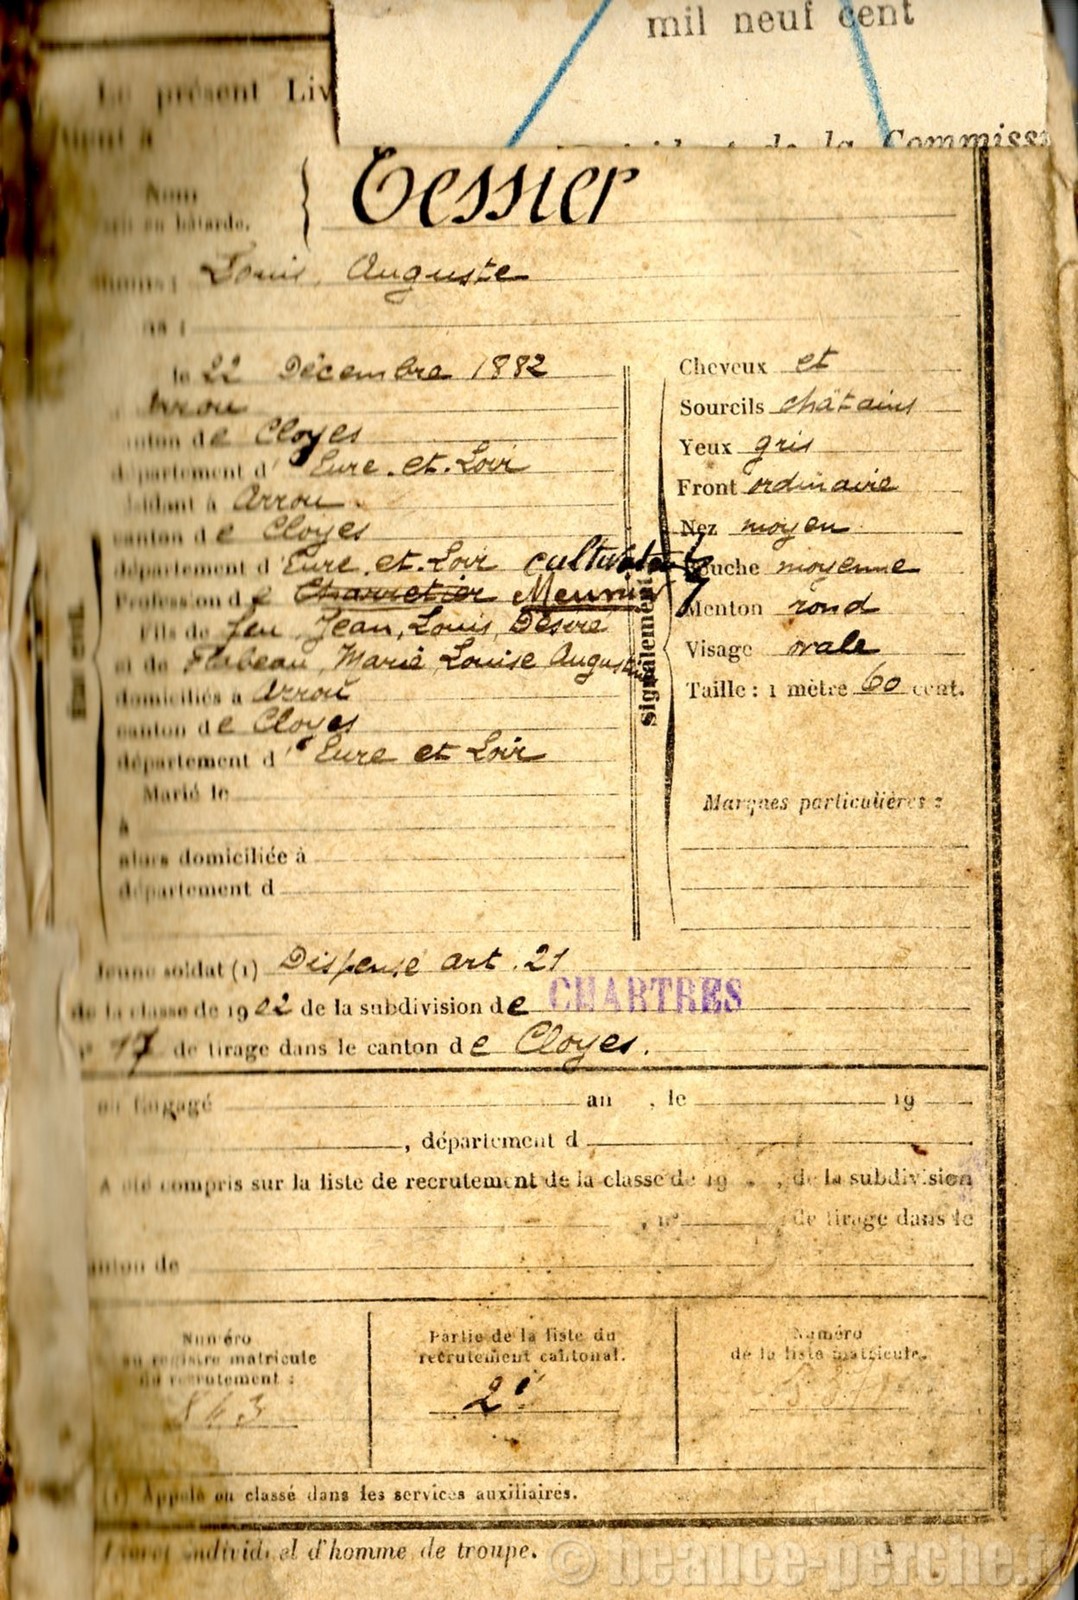 mil neuf cent
de la Commiss
Le présent Liv
tient à
Nom
en bâtarde.
Tessier
Louis, Auguste
le 22 Décembre 1882
Arrou
canton de Cloyes
département d'Eure.et.Loir
résidant à Arrou
canton de Cloyes
département d'Eure.et.Loir cultivateur
Profession de Charretier Meunier
Fils de feu Jean, Louis, Désiré
et de Flabeau, Marie Louise Augustine
domiciliés à Arrou
canton de Cloyes
département d'Eure et Loir
Marié le
à
alors domiciliée à
département d
Signalement
Cheveux et
Sourcils châtains
Yeux gris
Front ordinaire
Nez moyen
Bouche moyenne
Menton rond
Visage ovale
Taille : 1 mètre 60 cent.
Marques particulières :
Jeune soldat (1) Dispensé art. 21
de la classe de 1902 de la subdivision de CHARTRES
17 de tirage dans le canton de Cloyes.
ou Engagé an , le 19
, département d
A été compris sur la liste de recrutement de la classe de 19 , de la subdivision
, n° de tirage dans le
canton de
Numéro
au registre matricule
du recrutement :
Partie de la liste du
recrutement cantonal.
2e
Numéro
de la liste matricule.
(1) Appelé ou classé dans les services auxiliaires.
Livret individuel d'homme de troupe.
© beauce-perche.fr